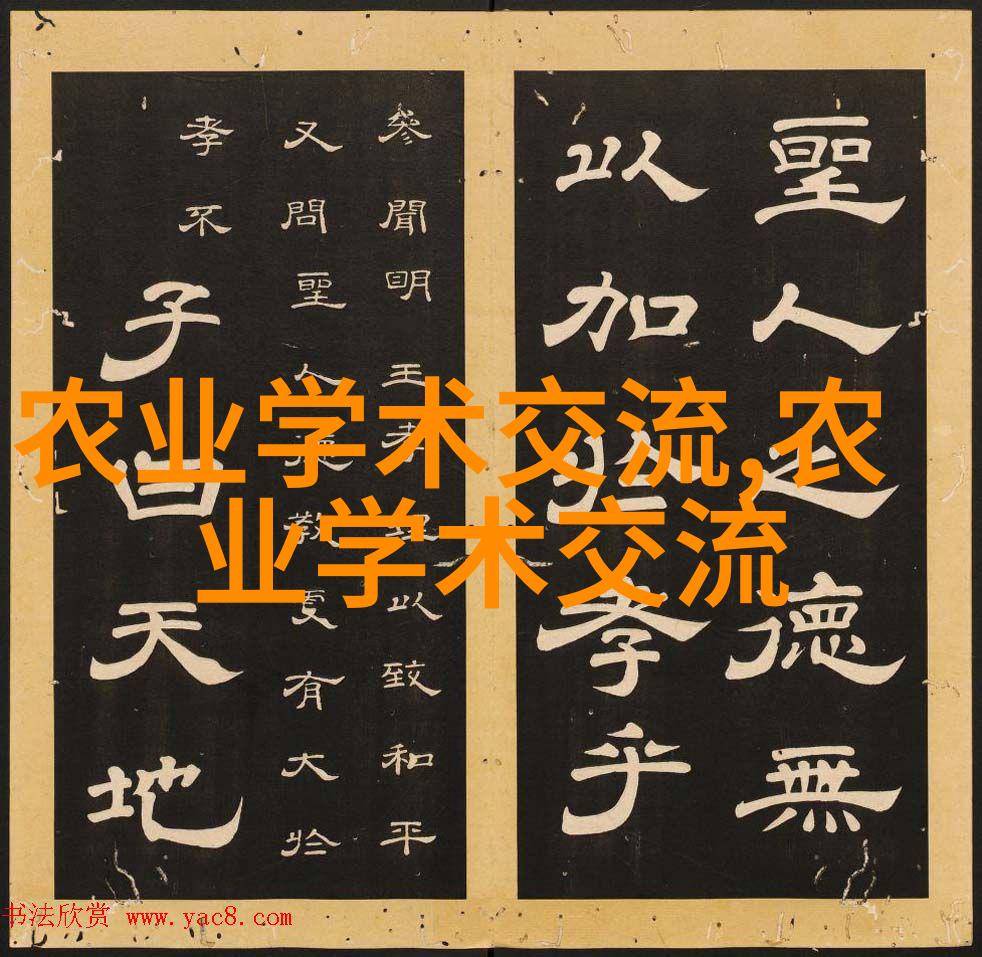 聖人之德無
以加於孝乎
參聞明王孝理以致和平
又問聖人德教更有大於
孝不
子曰天地
农业学术交流,农
业学术交流
书法欣赏 www.yac8.com